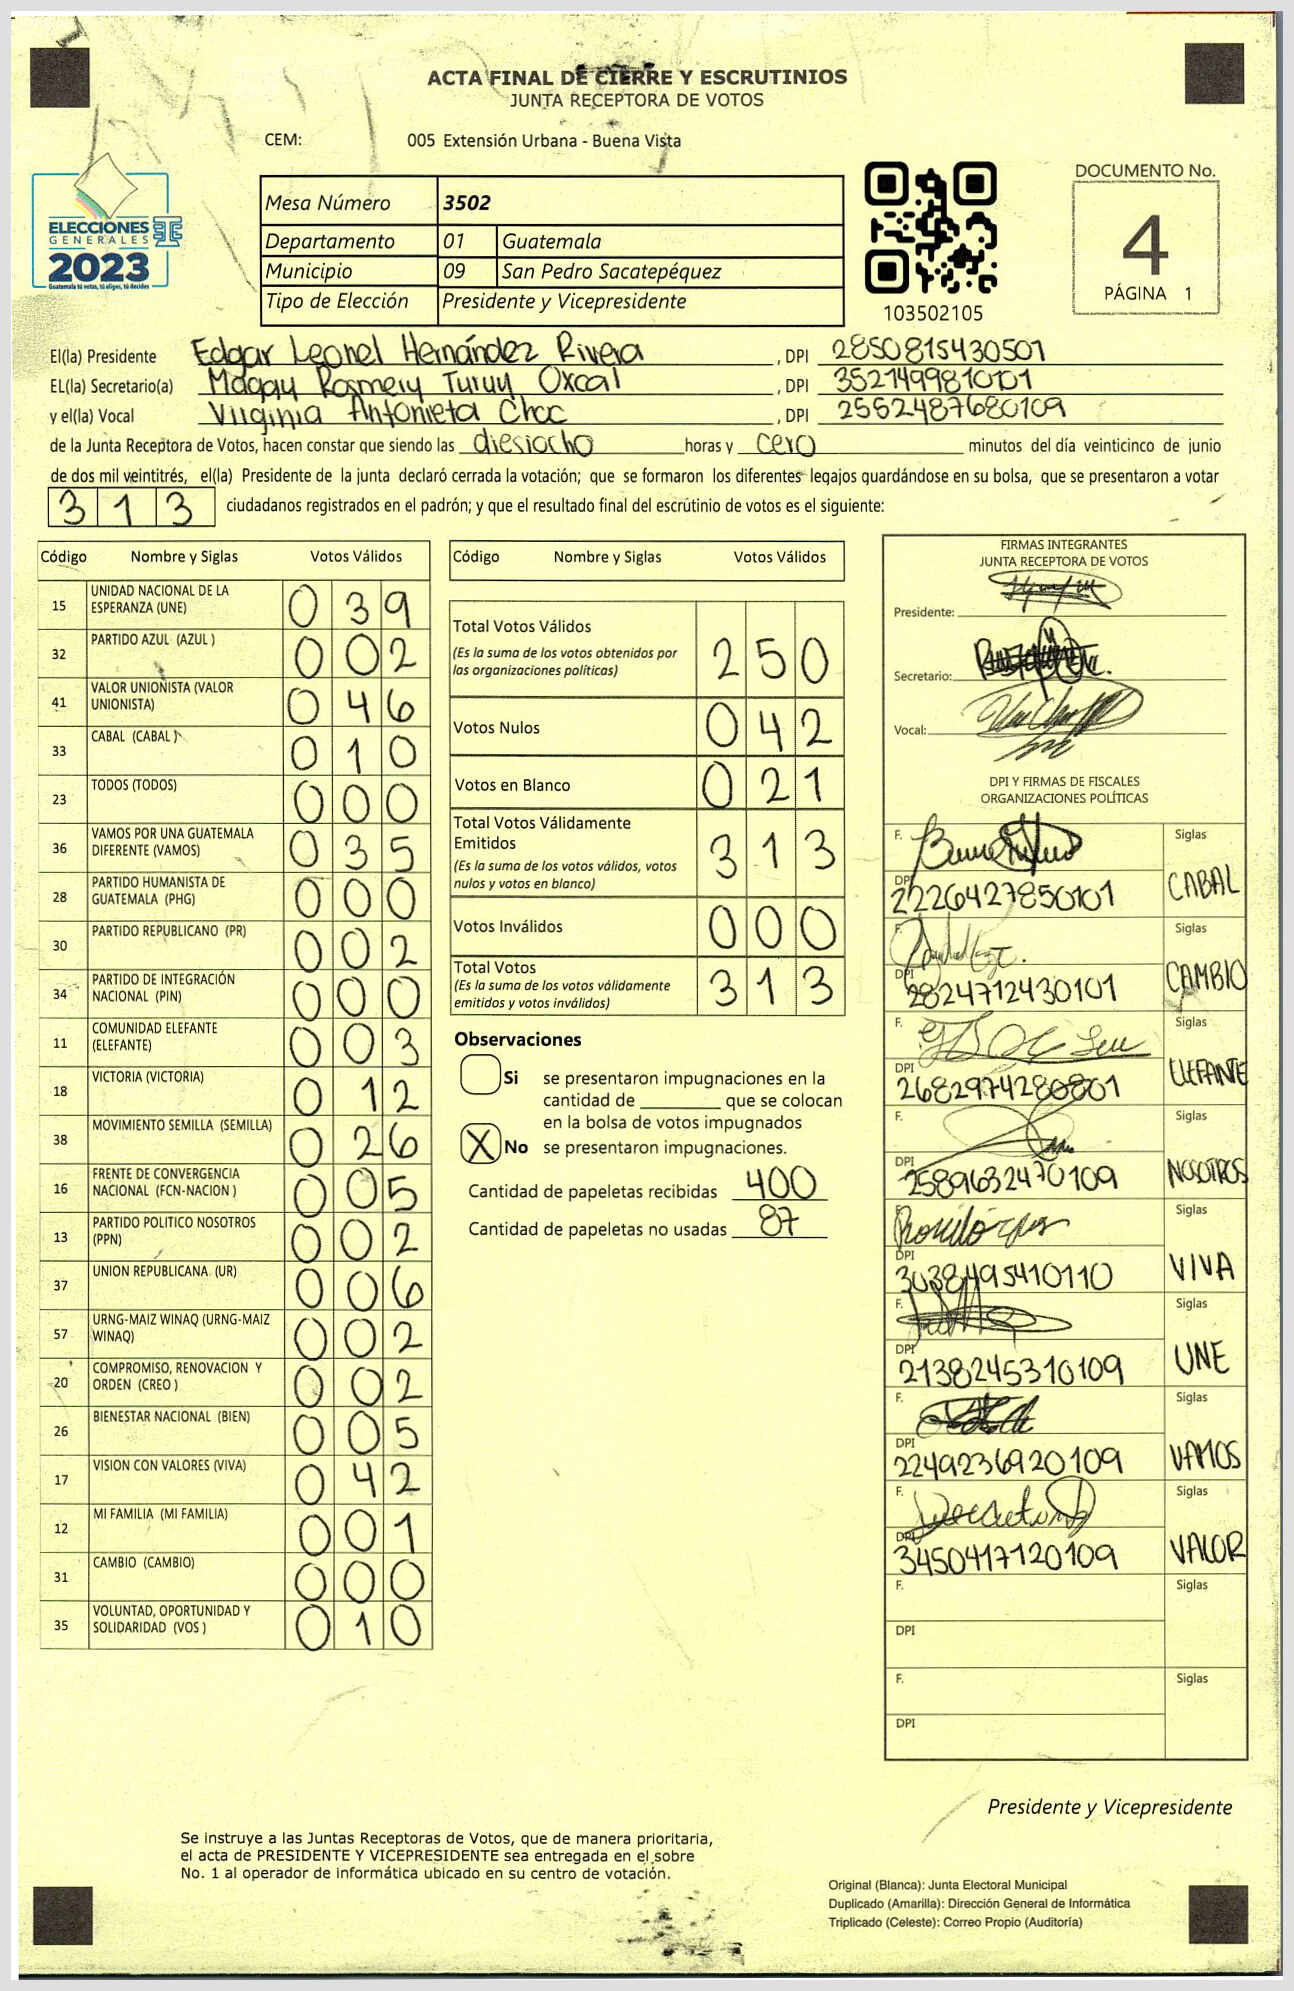 ACTA FINAL DE CIERRE Y ESCRUTINIOS
JUNTA RECEPTORA DE VOTOS
CEM: 005 Extensión Urbana - Buena Vista
ELECCIONES
GENERALES
2023
Guatemala tú votas, tú eliges, tú decides
Mesa Número 3502
Departamento 01 Guatemala
Municipio 09 San Pedro Sacatepéquez
Tipo de Elección Presidente y Vicepresidente
103502105
DOCUMENTO No.
4
PÁGINA 1
El(la) Presidente Edgar Leonel Hernández Rivera , DPI 2850815430501
EL(la) Secretario(a) Maggy Rosmery Turuy Oxcal , DPI 3521499810101
y el(la) Vocal Virginia Antonieta Choc , DPI 2552487680109
de la Junta Receptora de Votos, hacen constar que siendo las diesiocho horas y cero minutos del día veinticinco de junio
de dos mil veintitrés, el(la) Presidente de la junta declaró cerrada la votación; que se formaron los diferentes legajos guardándose en su bolsa, que se presentaron a votar
313 ciudadanos registrados en el padrón; y que el resultado final del escrútinio de votos es el siguiente:
Código Nombre y Siglas Votos Válidos
15 UNIDAD NACIONAL DE LA ESPERANZA (UNE) 039
32 PARTIDO AZUL (AZUL ) 002
41 VALOR UNIONISTA (VALOR UNIONISTA) 046
33 CABAL (CABAL ) 010
23 TODOS (TODOS) 000
36 VAMOS POR UNA GUATEMALA DIFERENTE (VAMOS) 035
28 PARTIDO HUMANISTA DE GUATEMALA (PHG) 000
30 PARTIDO REPUBLICANO (PR) 002
34 PARTIDO DE INTEGRACIÓN NACIONAL (PIN) 000
11 COMUNIDAD ELEFANTE (ELEFANTE) 003
18 VICTORIA (VICTORIA) 012
38 MOVIMIENTO SEMILLA (SEMILLA) 026
16 FRENTE DE CONVERGENCIA NACIONAL (FCN-NACION ) 005
13 PARTIDO POLITICO NOSOTROS (PPN) 002
37 UNION REPUBLICANA (UR) 006
57 URNG-MAIZ WINAQ (URNG-MAIZ WINAQ) 002
20 COMPROMISO, RENOVACION Y ORDEN (CREO ) 002
26 BIENESTAR NACIONAL (BIEN) 005
17 VISION CON VALORES (VIVA) 042
12 MI FAMILIA (MI FAMILIA) 001
31 CAMBIO (CAMBIO) 000
35 VOLUNTAD, OPORTUNIDAD Y SOLIDARIDAD (VOS ) 010
Código Nombre y Siglas Votos Válidos
Total Votos Válidos 250
(Es la suma de los votos obtenidos por
las organizaciones políticas)
Votos Nulos 042
Votos en Blanco 021
Total Votos Válidamente
Emitidos 313
(Es la suma de los votos válidos, votos
nulos y votos en blanco)
Votos Inválidos 000
Total Votos 313
(Es la suma de los votos válidamente
emitidos y votos inválidos)
Observaciones
Si se presentaron impugnaciones en la
cantidad de ________ que se colocan
en la bolsa de votos impugnados
X No se presentaron impugnaciones.
Cantidad de papeletas recibidas 400
Cantidad de papeletas no usadas 87
FIRMAS INTEGRANTES
JUNTA RECEPTORA DE VOTOS
Presidente:
Secretario:
Vocal:
DPI Y FIRMAS DE FISCALES
ORGANIZACIONES POLÍTICAS
F. Siglas
DPI 2226427850101 CABAL
F. Siglas
DPI 2824712430101 CAMBIO
F. Siglas
DPI 2682974280801 ELEFANTE
F. Siglas
DPI 2589632470109 NOSOTROS
F. Siglas
DPI 3038495410110 VIVA
F. Siglas
DPI 2138245310109 UNE
F. Siglas
DPI 2249236920109 VAMOS
F. Siglas
DPI 3450417120109 VALOR
F. Siglas
DPI
F. Siglas
DPI
Presidente y Vicepresidente
Se instruye a las Juntas Receptoras de Votos, que de manera prioritaria,
el acta de PRESIDENTE Y VICEPRESIDENTE sea entregada en el sobre
No. 1 al operador de informática ubicado en su centro de votación.
Original (Blanca): Junta Electoral Municipal
Duplicado (Amarilla): Dirección General de Informática
Triplicado (Celeste): Correo Propio (Auditoría)